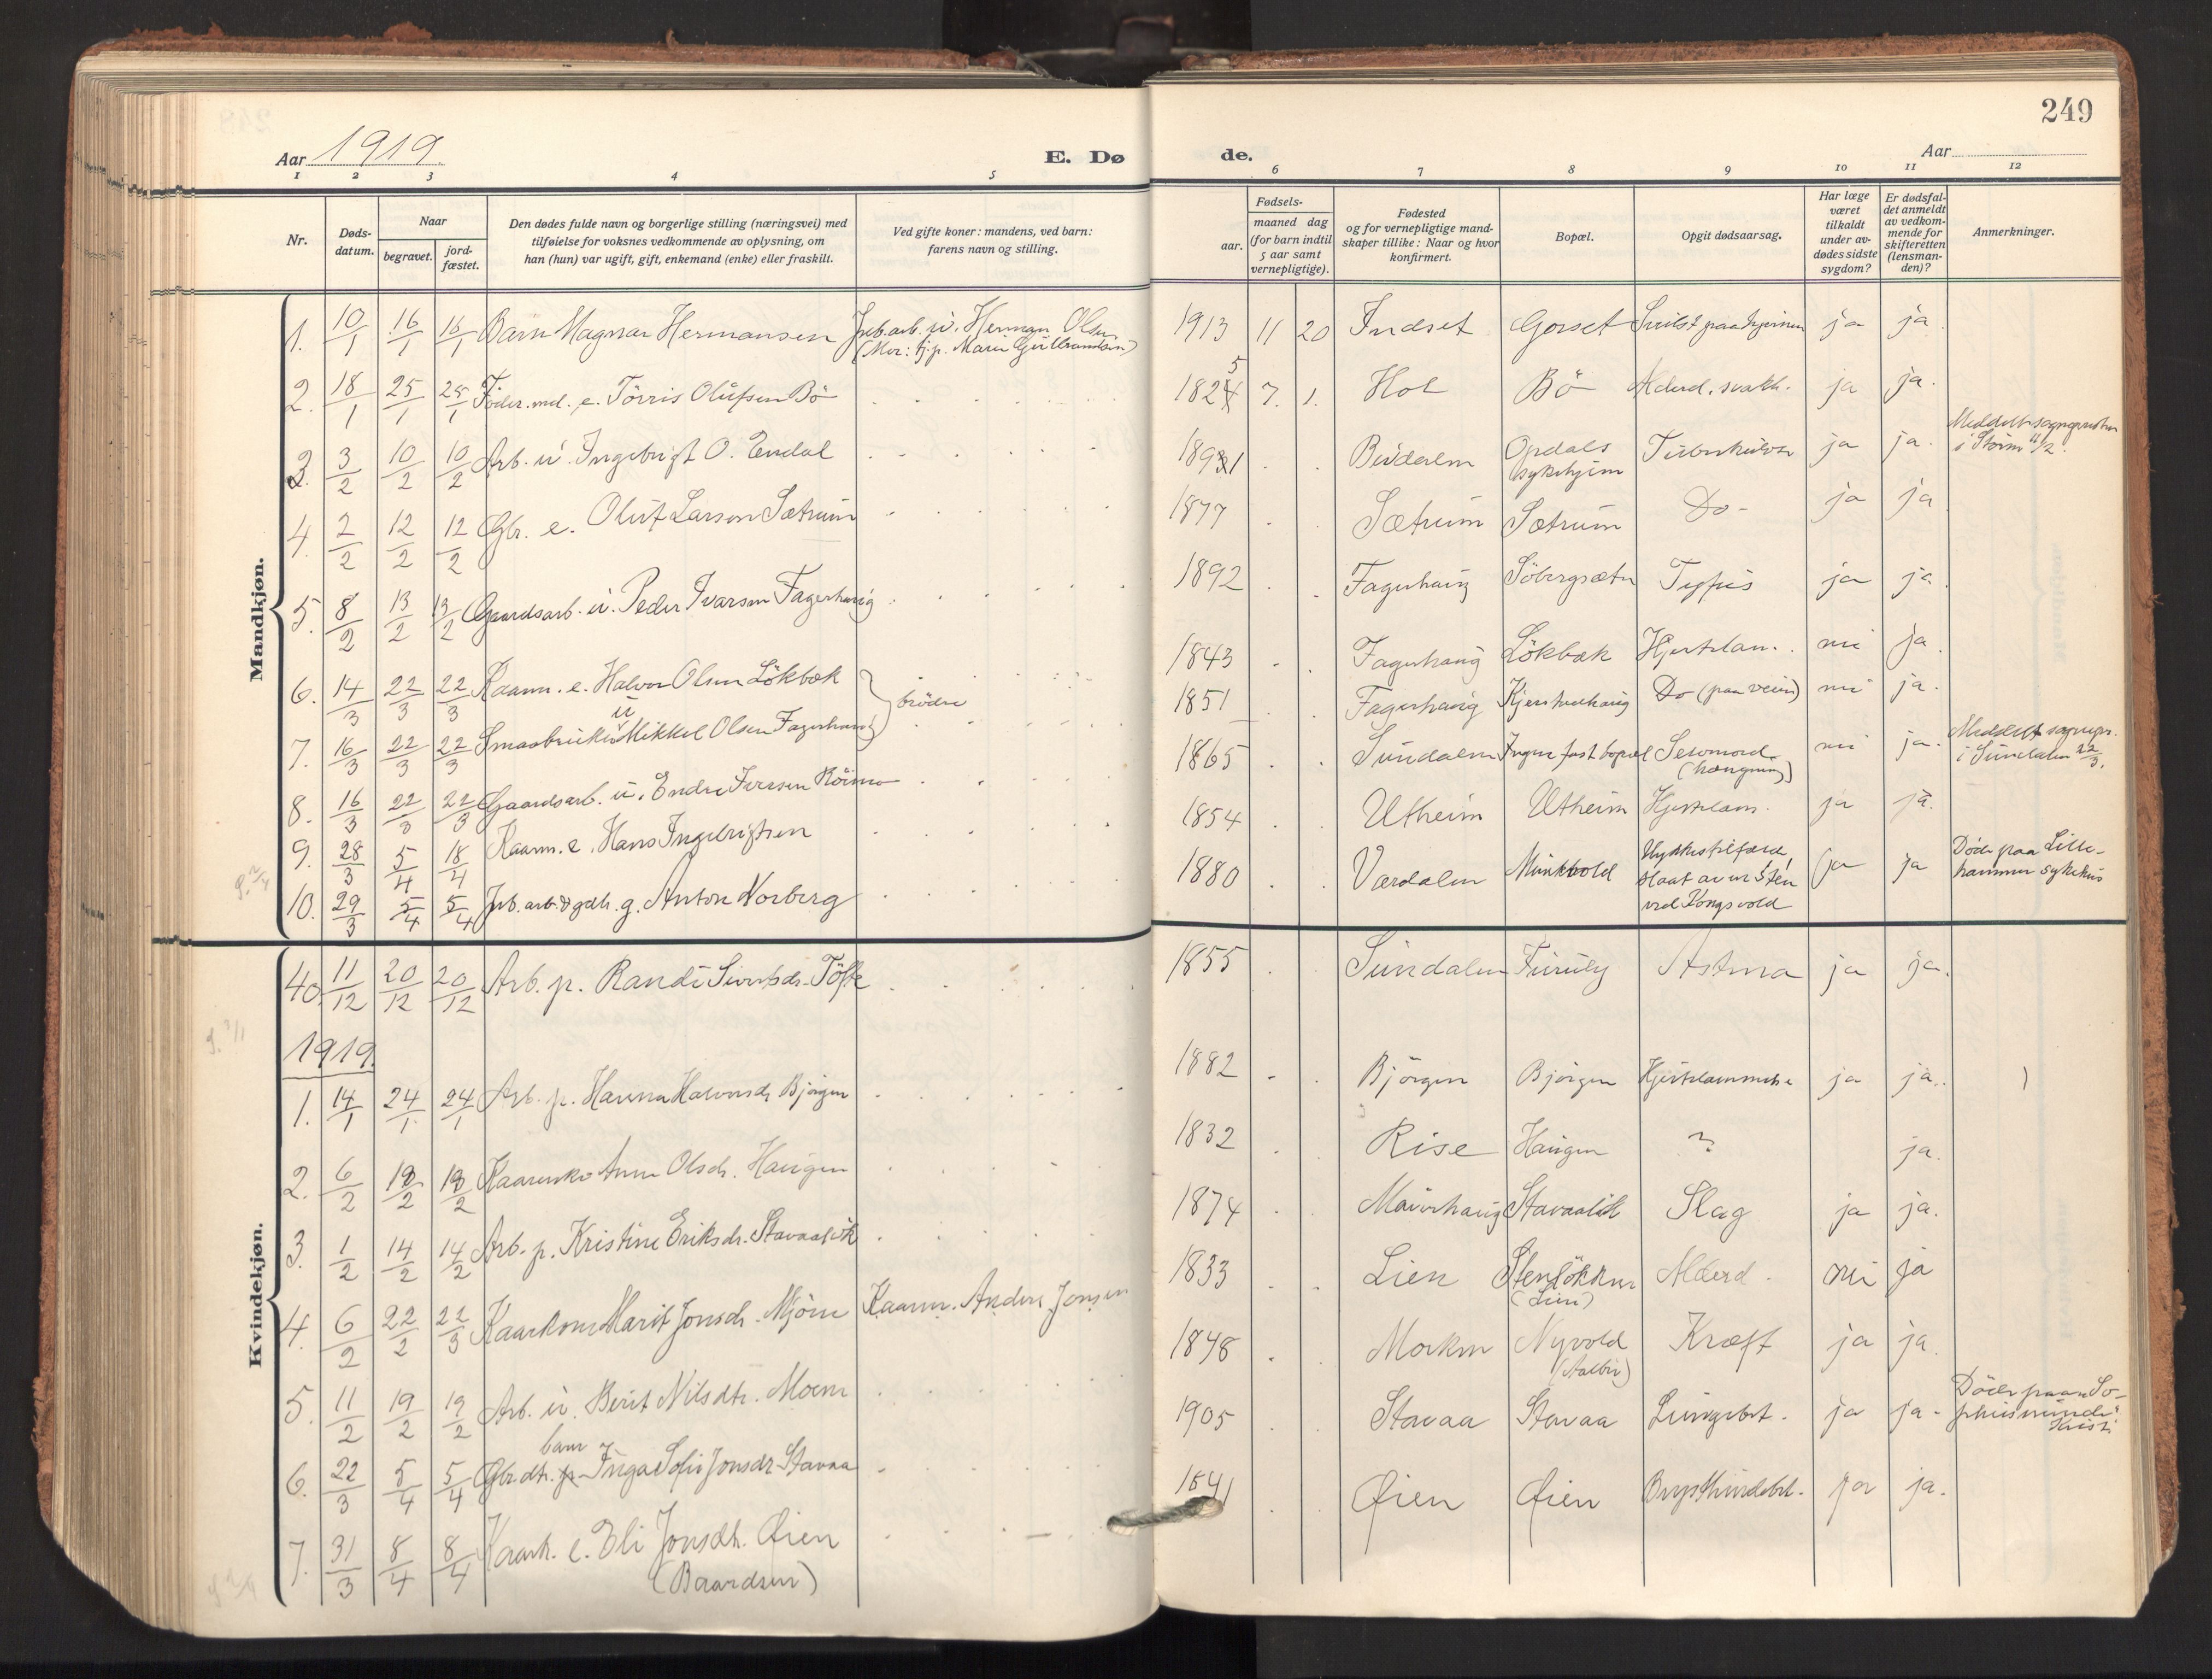 249
Aar 1919
E. Dø
de.
Aar
1 2 3 4 5 6 7 8 9 10 11 12
Nr.
Døds-
datum.
Naar
begravet.
jord-
fæstet.
Den dødes fulde navn og borgerlige stilling (næringsvei) med
tilføielse for voksnes vedkommende av oplysning, om
han (hun) var ugift, gift, enkemand (enke) eller fraskilt.
Ved gifte koner: mandens, ved barn:
farens navn og stilling.
Fødsels-
aar.
maaned dag
(for barn indtil
5 aar samt
vernepligtige).
Fødested
og for vernepligtige mand-
skaper tillike: Naar og hvor
konfirmert.
Bopæl.
Opgit dødsaarsag.
Har læge
været
tilkaldt
under av-
dødes sidste
sygdom?
Er dødsfal-
det anmeldt
av vedkom-
mende for
skifteretten
(lensman-
den)?
Anmerkninger.
Mandkjøn.
1. 10/1 16/1 16/1 Barn Magnar Hermansen Jrb.arb. u. Herman Olsen 1913 11 20 Indset Gorset ja ja
(Mor: tj.p. Marie Gulbrandsen)
2. 18/1 25/1 25/1 Föder.md. e. Törris Olufsen Bö 1825 7. 1. Hol Bö Alderd. svakh. ja ja.
3. 3/2 10/2 10/2 Arb. u. Ingebrigt O. Endal 1891 Budalen Opdals sykehjem Tuberkulose ja ja. Meddelt sogneprsten
i Storen 11/2.
4. 2/2 12/2 12/2 Gbr. e. Oluf Larsen Sætrum 1877 Sætrum Sætrum Do- ja ja
5. 8/2 13/2 13/2 Gaardsarb. u. Peder Ivarsen Fagerhaug 1892 Fagerhaug Söbergsæter Tyfus ja ja
6. 14/3 22/3 22/3 Kaarm. e. Halvor Olsen Lökbæk } brödre 1843 Fagerhaug Lökbæk Hjertelam. nei ja
7. 16/3 22/3 22/3 Smaabruker u Mikkel Olsen Fagerhaug 1851 Fagerhaug Kjerstuehaug Do (paa veien) nei ja.
8. 16/3 22/3 22/3 Gaardsarb. u. Endre Iversen 1865 Sundalen Ingen fast bopæl Selvmord (hængning) nei ja. Meddelt sognepr.
i Sundalen 22/3.
9. 28/3 5/4 18/4 Kaarm. e. Hans Ingebrigtsen 1854 Utheim Utheim Hjertelam. ja ja.
10. 29/3 5/4 5/4 Jrb. arb. & gdb. g. Anton Norberg 1880 Værdalen Munkvold Ulykkestilfælde, slaat av en Sten ved Kongsvold ja ja Døde paa Lille-
hammer sykehus
Kvindekjøn.
40. 11/12 20/12 20/12 Arb. p. Randi Sivertsdr. Töfte 1855 Sundalen Furuly Astma ja ja.
1919.
1. 14/1 24/1 24/1 Arb. p. Hanna Halvorsdr Bjørgen 1882 Bjørgen Bjørgen Hjertelammelse ja ja.
2. 6/2 18/2 18/2 Kaarenke Anne Olsdr. Haugen 1832 Rise Haugen ? ja.
3. 1/2 14/2 14/2 Arb. p. Kristine Eriksdr. Stavaalök 1874 Maurhaug Stavaalök Slag ja ja.
4. 6/2 22/2 22/3 Kaarkone Marit Jonsdr. Mjöen Kaarm. Anders Jonsen 1833 Lien Stenlökken (Lien) Alderd. nei ja
5. 11/2 19/2 19/2 Arb. u. Berit Nilsdtr. Moen 1848 Morken Nyvold (Aalbu) Kræft ja ja.
6. 22/3 5/4 5/4 Gbr.dtr. barn Inga Sofie Jonsdr Stavaa 1905 Stavaa Stavaa Lungebet. ja ja. Döde paa "So-
phiesminde"
Krist.
7. 31/3 8/4 8/4 Kaark. e. Eli Jonsdtr. Øien 1841 Øien Øien Brysthindebet. ja ja.
(Baardsen)